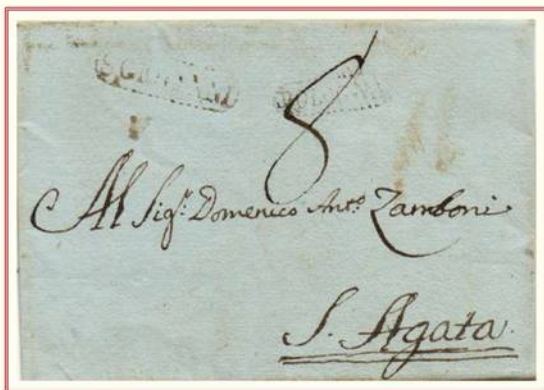 8
Al Sig.r Domenico Ant.o Zamboni
S. Agata.